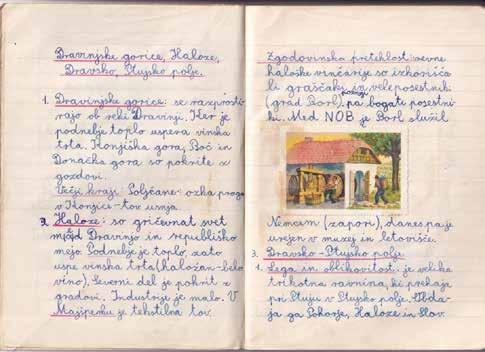 Dravinjske gorice, Haloze,
Dravsko, Ptujsko polje.
1. Dravinjske gorice: se razprosti-
rajo ob reki Dravinji. Ker je
podnebje toplo uspeva vinska
trta. Konjiška gora, Boč in
Donačka gora so pokrite z
gozdovi.
Večji kraji: Poljčane- ozka proga
v Konjice - tov. usnja
2. Haloze: so gričevnat svet
med Dravinjo in republiško
mejo. Podnebje je toplo, zato
uspe vinska trta (haložan-belo
vino), Severni del je pokrit z
gradovi. Industrije je malo. V
Majšperku je tekstilna tov.
Zgodovinska preteklost: revne
haloške viničarje so izkorišča
li graščaki in veleposestniki
(grad Borl), pozneje pa bogati posestni
ki. Med NOB je Borl služil
Nemcem (zapori), danes pa je
urejen v muzej in letovišče.
3. Dravsko - Ptujsko polje
1. Lega in oblikovitost: je velika
trikotna ravnina, ki prehaja
pri Ptuju v Ptujsko polje. Obda-
ja ga Pohorje, Haloze in Slov.